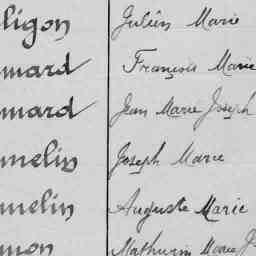 ligon Julien Marie
mard François Marie
mard Jean Marie Joseph
melin Joseph Marie
melin Auguste Marie
mon Mathurin Marie J